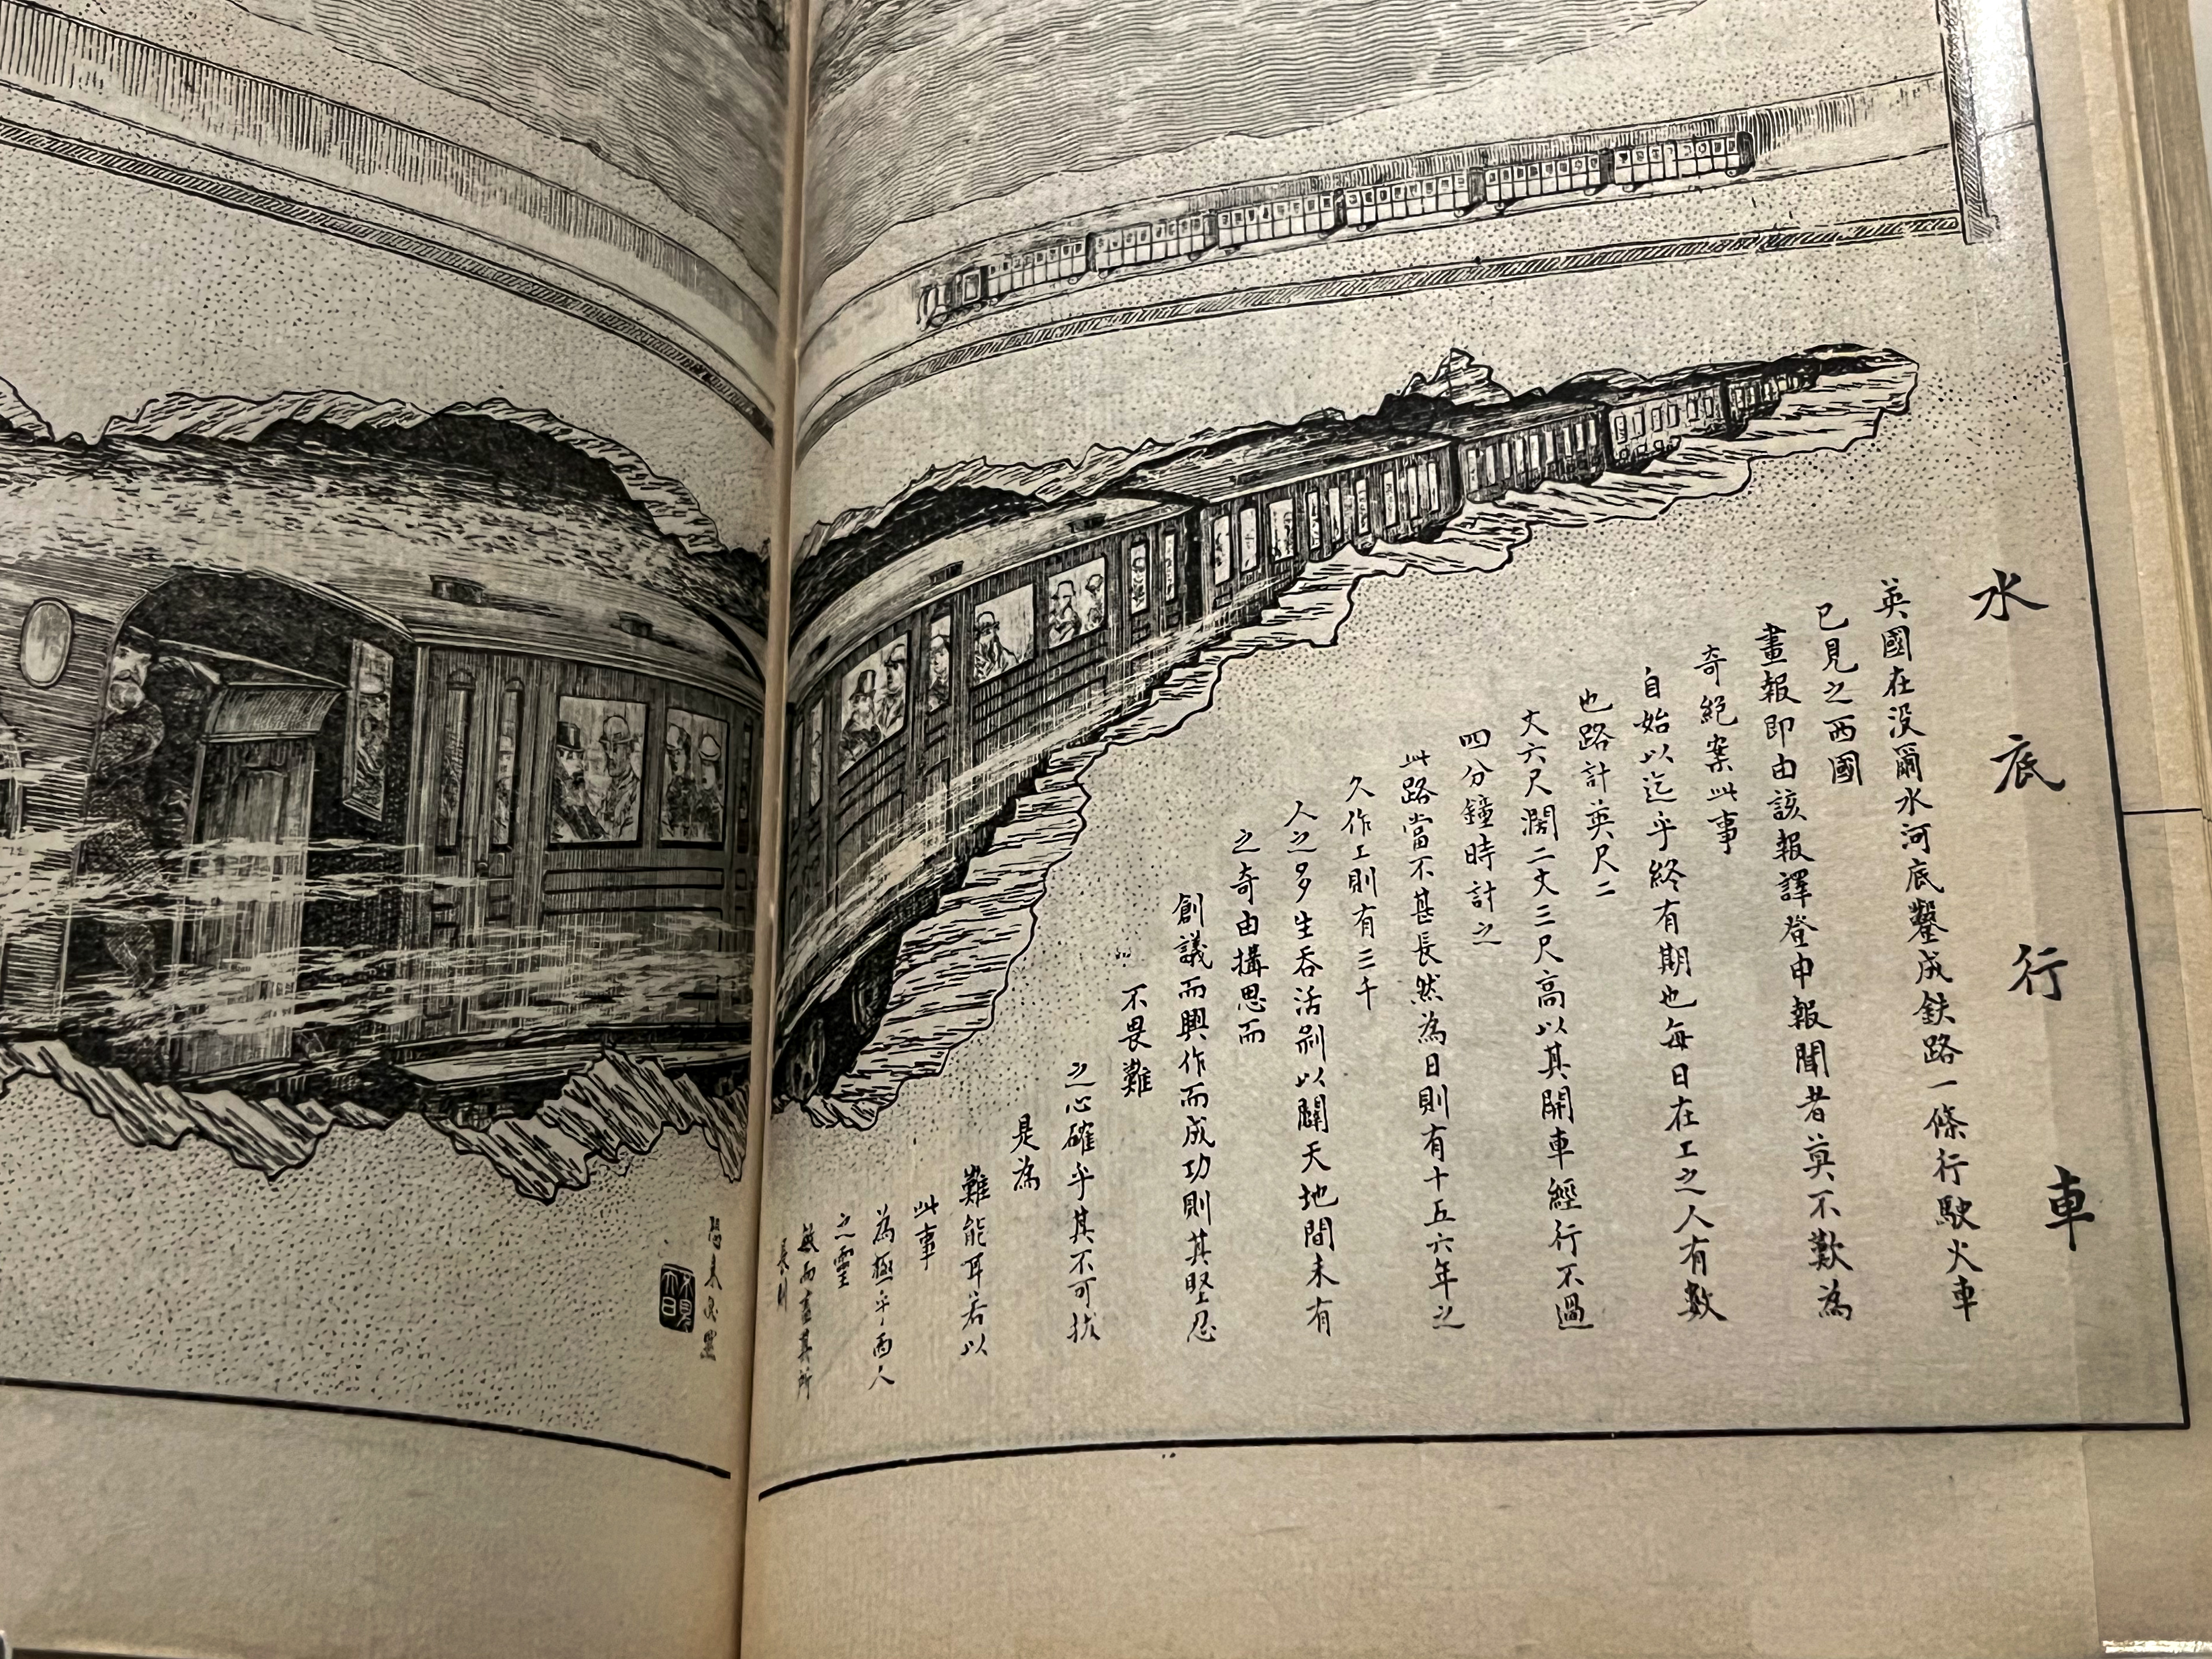 水底行車
英國在没爾水河底鑿成鉄路一條行駛火車
已見之西國
畫報即由該報譯登申報聞者莫不歎為
奇絕案此事
自始以迄乎終有期也每日在工之人有數
也路計英尺二
丈六尺濶二丈三尺高以其開車經行不過
四分鐘時計之
此路當不甚長然為日則有十五六年之
久作工則有三千
人之多生吞活剝以闢天地間未有
之奇由搆思而
創議而興作而成功則其堅忍
不畏難
之心確乎其不可拔
是為
難能耳若以
此事
為極乎西人
之靈
敏而盡其所
長則